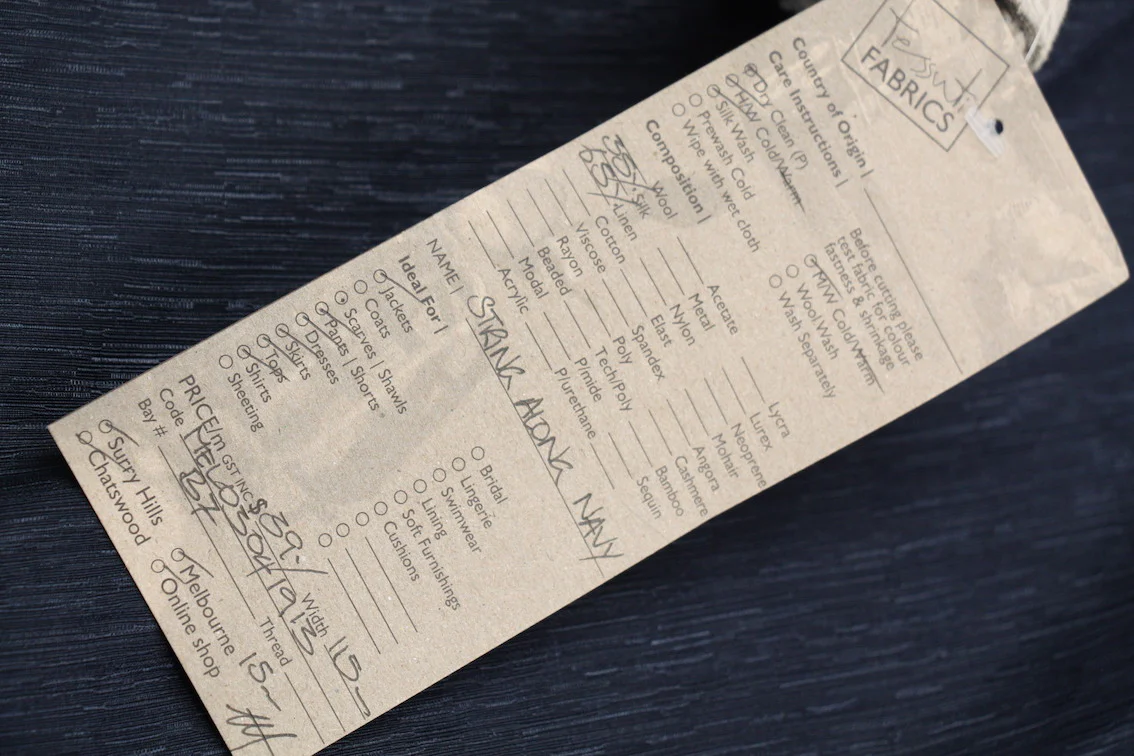 Tessuti
FABRICS
Country of Origin |
Care Instructions |
Dry Clean (P)
H/W Cold/Warm
Silk Wash
Prewash Cold
Wipe with wet cloth
Before cutting please
test fabric for colour
fastness & shrinkage
M/W Cold/Warm
Wool Wash
Wash Separately
Composition |
Wool
35% Silk
65% Linen
Cotton
Viscose
Rayon
Beaded
Modal
Acrylic
Acetate
Metal
Nylon
Elast
Spandex
Poly
Tech/Poly
P/mide
P/urethane
Lycra
Lurex
Neoprene
Mohair
Angora
Cashmere
Bamboo
Sequin
NAME | STRING ALONG NAVY
Ideal For |
Jackets
Coats
Scarves | Shawls
Pants | Shorts
Dresses
Skirts
Tops
Shirts
Sheeting
Bridal
Lingerie
Swimwear
Lining
Soft Furnishings
Cushions
PRICE/m GST INC $ 39.- Width 115
Code MEL030419B
Bay # B7 Thread
Surry Hills
Chatswood
Melbourne 15m
Online shop